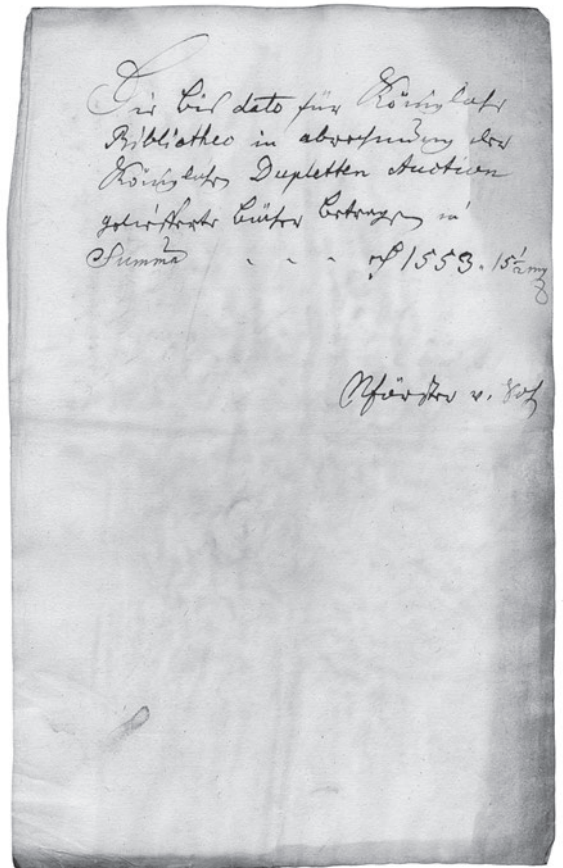 Die bis dato für Königliche
Bibliothec in abrechnung der
Königlichen Dupletten Auction
gelieferte bücher betragen in
Summa - - - 1553. 15½ mg
Förster v.